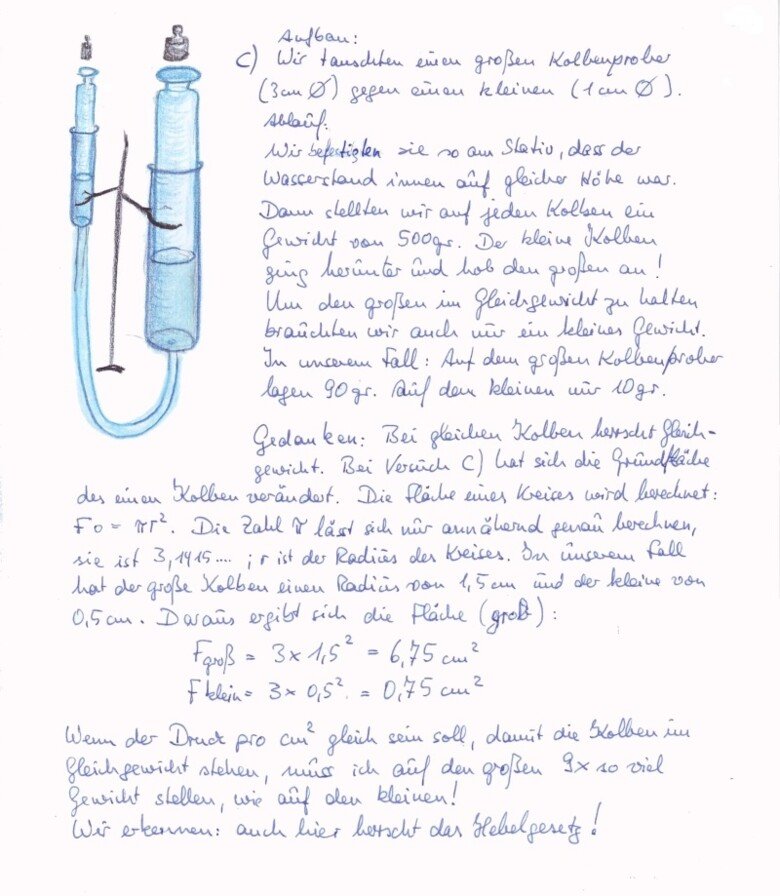 Aufbau:
c) Wir tauschten einen großen Kolbenprober
(3cm Ø) gegen einen kleinen (1cm Ø).
Ablauf:
Wir befestigten sie so am Stativ, dass der
Wasserstand innen auf gleicher Höhe war.
Dann stellten wir auf jeden Kolben ein
Gewicht von 500gr. Der kleine Kolben
ging herunter und hob den großen an!
Um den großen im Gleichgewicht zu halten
brauchten wir auch nur ein kleines Gewicht.
In unserem Fall: Auf dem großen Kolbenprober
lagen 90gr. Auf dem kleinen nur 10gr.
Gedanken: Bei gleichen Kolben herrscht Gleich-
gewicht. Bei Versuch C) hat sich die Grundfläche
des einen Kolben verändert. Die Fläche eines Kreises wird berechnet:
Fo = πr². Die Zahl π lässt sich nur annähernd genau berechnen,
sie ist 3,1415.... ; r ist der Radius des Kreises. In unserem Fall
hat der große Kolben einen Radius von 1,5cm und der kleine von
0,5cm. Daraus ergibt sich die Fläche (groß):
Fgroß = 3 x 1,5² = 6,75 cm²
Fklein = 3 x 0,5² = 0,75 cm²
Wenn der Druck pro cm² gleich sein soll, damit die Kolben im
Gleichgewicht stehen, muss ich auf den großen 9x so viel
Gewicht stellen, wie auf den kleinen!
Wir erkennen: auch hier herrscht das Hebelgesetz!